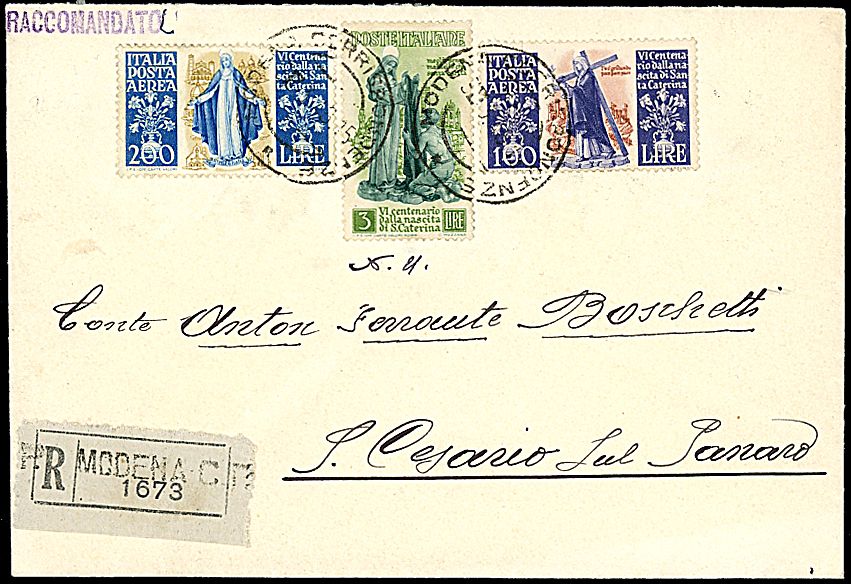 RACCOMANDATO
ITALIA
POSTA
AEREA
VI Centena
rio dalla na
scita di San
ta Caterina
200 LIRE
POSTE ITALIANE
3 LIRE
VI centenario
dalla nascita
di S. Caterina
ITALIA
POSTA
AEREA
VI Centena
rio dalla na
scita di San
ta Caterina
100 LIRE
MODENA
N. U.
Conte Anton Ferrante Boschetti
S. Cesario sul Panaro
R MODENA C.
1673